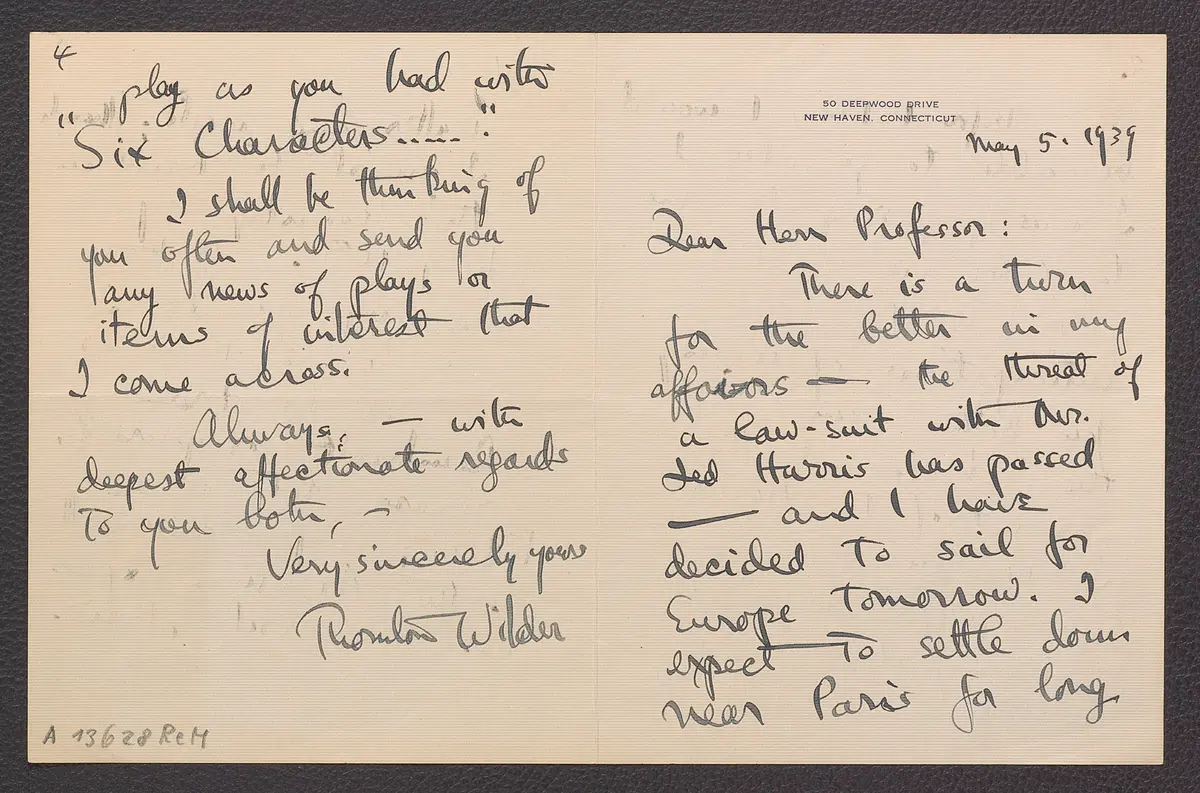 4
play as you had with
"Six Characters....."
I shall be thinking of
you often and send you
any news of plays or
items of interest that
I come across.
Always, — with
deepest affectionate regards
to you both, —
Very sincerely yours
Thornton Wilder
A 13628 ReM
50 DEEPWOOD DRIVE
NEW HAVEN, CONNECTICUT
May 5. 1939
Dear Herr Professor:
There is a turn
for the better in my
affairs — the threat of
a law-suit with Mr.
Jed Harris has passed
— and I have
decided to sail for
Europe tomorrow. I
expect to settle down
near Paris for long